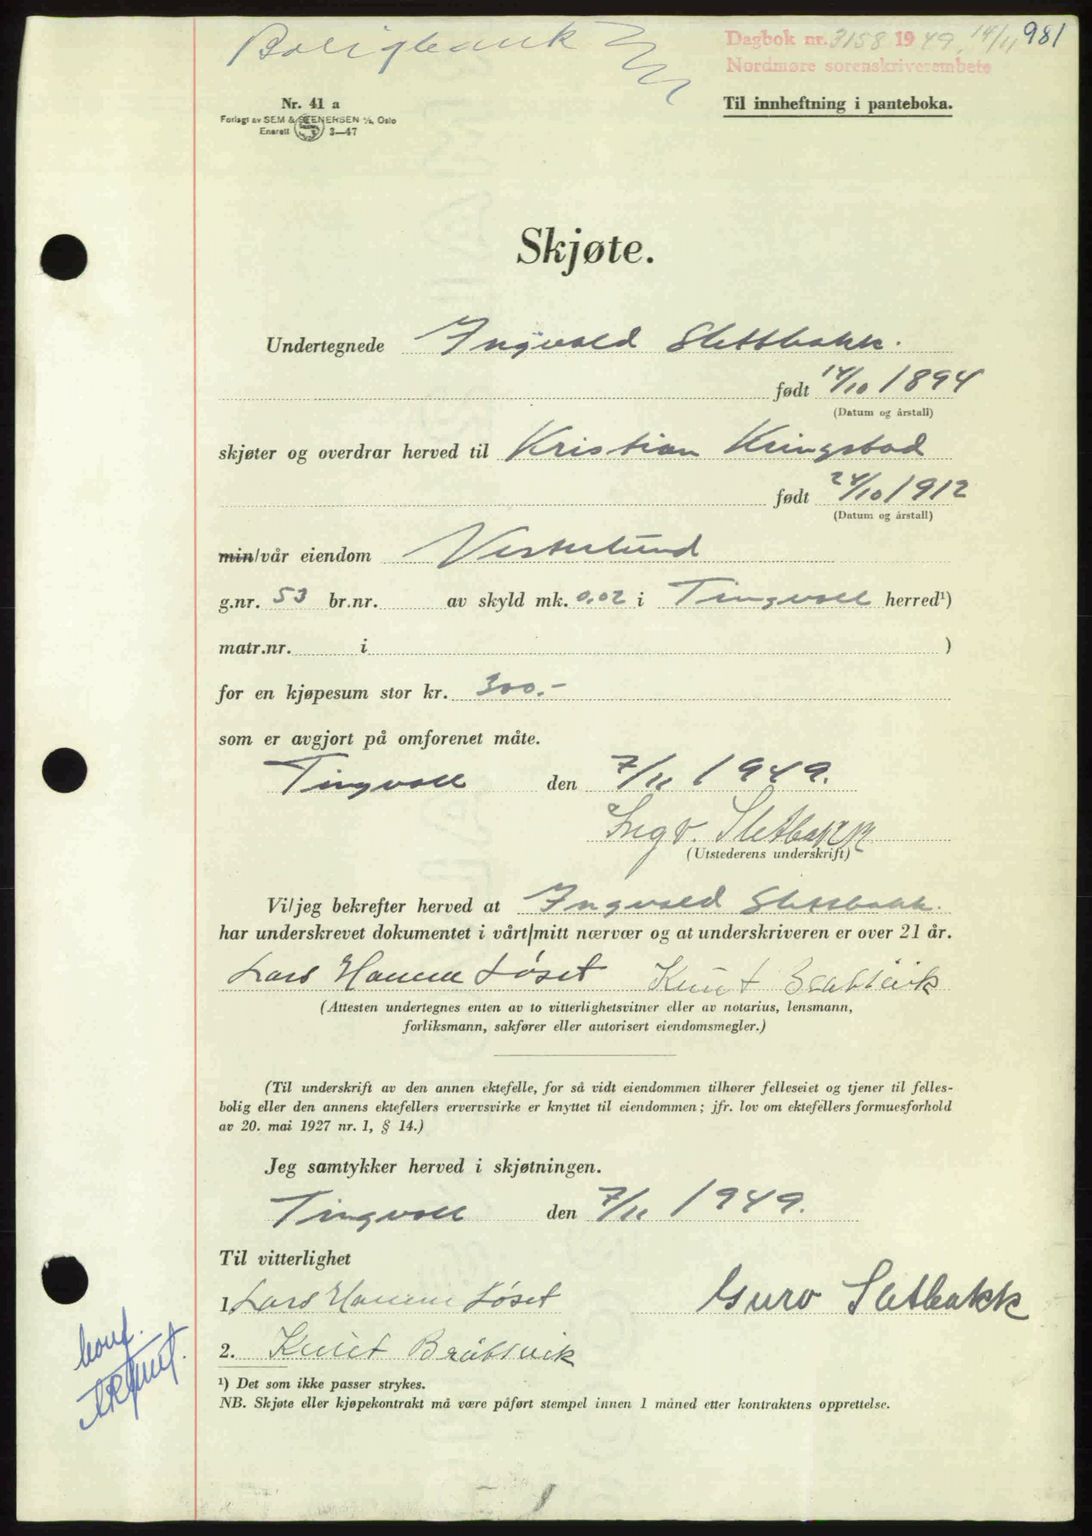 Boligbank
Dagbok nr. 3158 1949. 14/11 981
Nordmøre sorenskriverembete
Nr. 41 a
Forlagt av SEM & STENERSEN A/S, Oslo
Enerett 3—47
Til innheftning i panteboka.
Skjøte.
Undertegnede Ingvald Slettbakk.
født 14/10 1894
(Datum og årstall)
skjøter og overdrar herved til Kristian Kringstad
født 24/10 1912
(Datum og årstall)
min/vår eiendom Vesterlund
g.nr. 53 br.nr. av skyld mk. 0.02 i Tingvoll herred¹)
matr.nr. i )
for en kjøpesum stor kr. 300.-
som er avgjort på omforenet måte.
Tingvoll den 7/11 1949.
Ingv. Sletbakk
(Utstederens underskrift)
Vi/jeg bekrefter herved at Ingvald Slettbakk.
har underskrevet dokumentet i vårt/mitt nærvær og at underskriveren er over 21 år.
Lars Hanem Løset Knut Bråttvik
(Attesten undertegnes enten av to vitterlighetsvitner eller av notarius, lensmann,
forliksmann, sakfører eller autorisert eiendomsmegler.)
(Til underskrift av den annen ektefelle, for så vidt eiendommen tilhører felleseiet og tjener til felles-
bolig eller den annens ektefellers ervervsvirke er knyttet til eiendommen; jfr. lov om ektefellers formuesforhold
av 20. mai 1927 nr. 1, § 14.)
Jeg samtykker herved i skjøtningen.
Tingvoll den 7/11 1949.
Til vitterlighet
1. Lars Hanem Løset Guro Sletbakk
2. Knut Bråttvik
konf.
¹) Det som ikke passer strykes.
NB. Skjøte eller kjøpekontrakt må være påført stempel innen 1 måned etter kontraktens opprettelse.